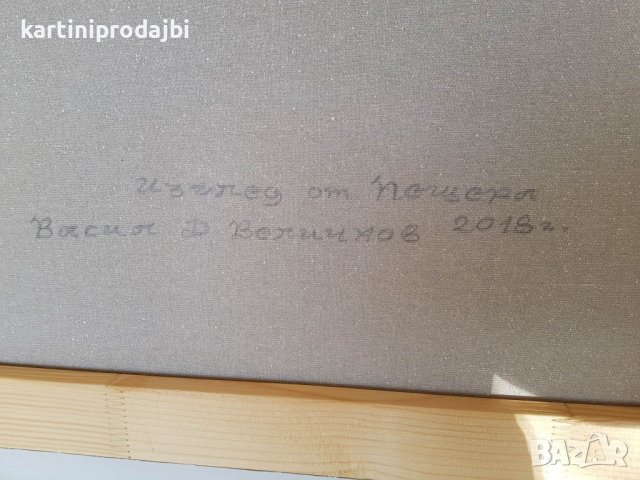 kartiniprodajbi
Изглед от Пещера
Васил Д Величков 2018г.
BAZAR